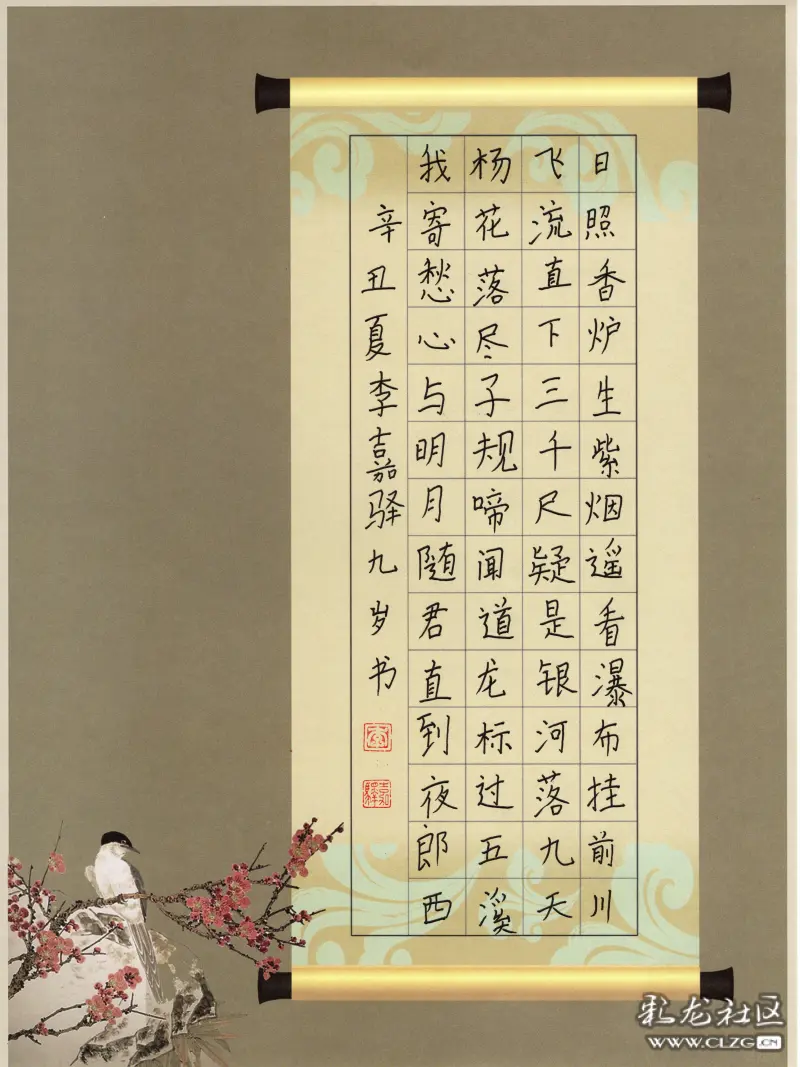 日照香炉生紫烟遥看瀑布挂前川
飞流直下三千尺疑是银河落九天
杨花落尽子规啼闻道龙标过五溪
我寄愁心与明月随君直到夜郎西
辛丑夏李嘉驿九岁书
李
嘉驿
彩龙社区
WWW.CLZG.CN